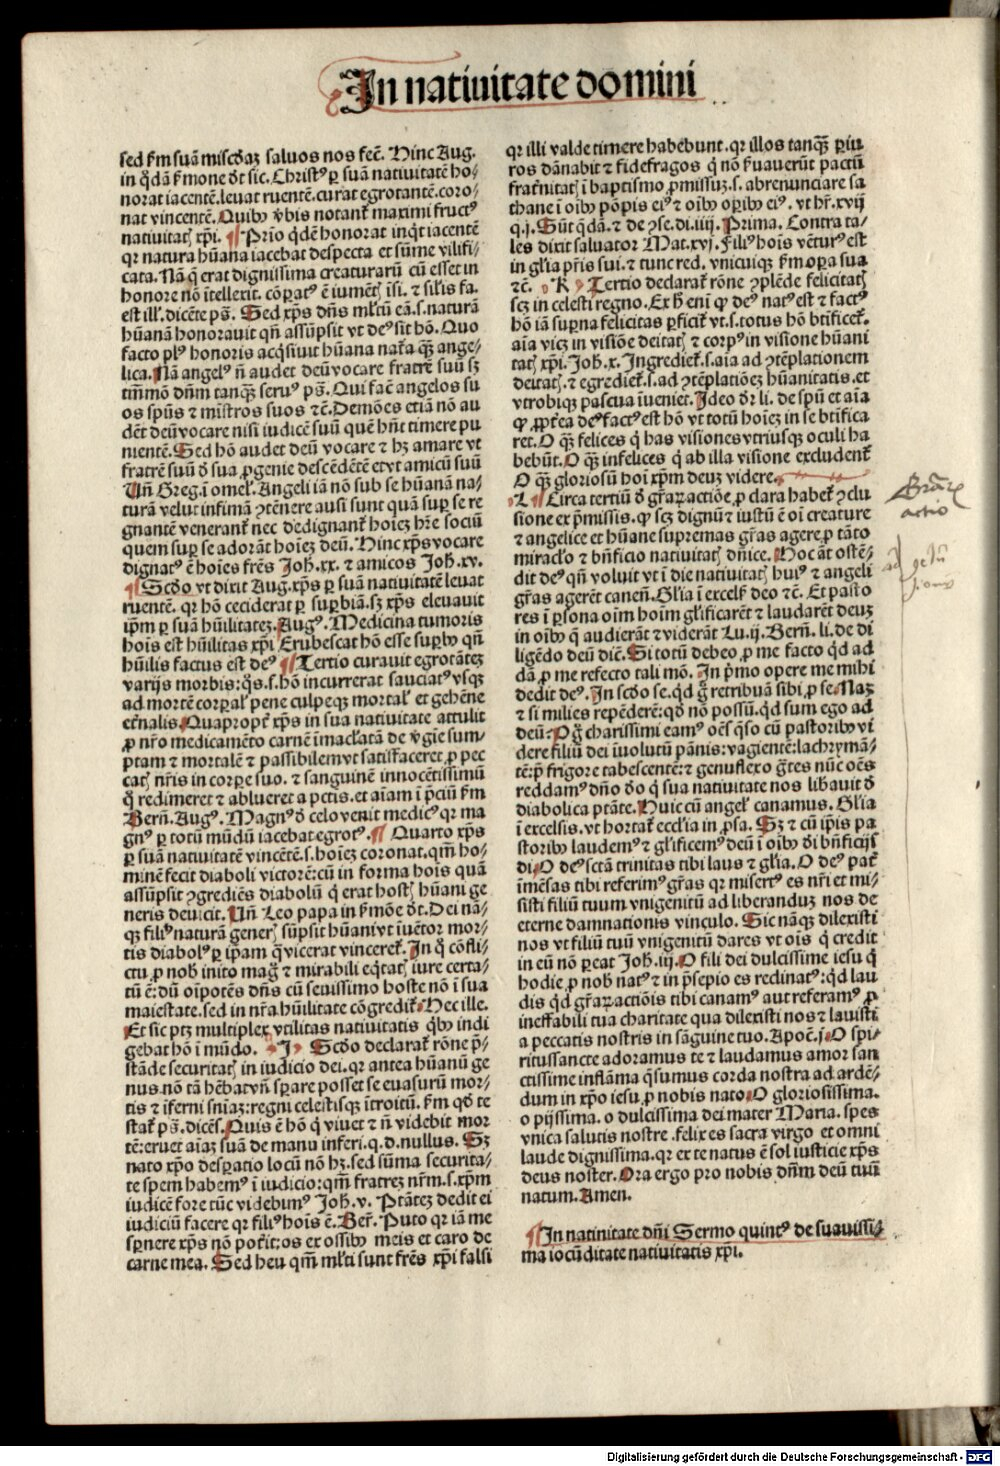 In natiuitate domini
sed ẜm suã misc̃dia₃ saluos nos fec̃. Hinc Aug.
in q̃dã ẜmone dt̃ sic. Christ⁹ ꝑ suã natiuitatẽ ho⸗
norat iacentẽ. leuat ruentẽ. curat egrotantẽ. coro⸗
nat vincentẽ. Quib⁹ v̾bis notant᷑ maximi fruct⁹
natiuitatꝭ xp̃i. ¶ Prĩo qđẽ honorat inq̃t iacentẽ
qꝛ natura hũana iacebat despecta et sũme vilifi⸗
cata. Nã q̃ erat dignissima creaturarũ cũ esset in
honore nõ ĩtellexit. cõꝑat⁹ ẽ iumẽtꝭ ĩsi. ⁊ sil̃is fa.
est ill̃. dicẽte ps̃. Sed xp̃s dñs ml̃tũ eã .s. naturã
hũanã honorauit qñ assũpsit vt de⁹ sit hõ. Quo
facto pl⁹ honoris acq̃siuit hũana nat᷑a q̃₃ ange⸗
lica. Nã angel⁹ ñ audet deũ vocare fratrẽ suũ s₃
tm̃mõ dñm tanq̃₃ seru⁹ ps̃. Qui facit angelos su
os sp̃us ⁊ mĩstros suos ⁊c̃. Demões etiã nõ au
dẽt deũ vocare nisi iudicẽ suũ quẽ hñt timere pu
nientẽ. Sed hõ audet deũ vocare ⁊ h₃ amare vt
fratrẽ suũ d̾ sua ꝓgenie descẽdẽtẽ et vt amicũ suũ
Vñ Greg. ĩ omel̃. Angeli iã nõ sub se hũanã na⸗
turã velut infimã ↄtẽnere ausi sunt quã suꝑ se re
gnantẽ venerant᷑ nec dedignant᷑ hoĩe₃ hr̃e sociũ
quem suꝑ se adorãt hoĩe₃ deũ. Hinc xp̃s vocare
dignat⁹ ẽ hoĩes fr̃es Joh. xx. ⁊ amicos Joh. xv.
¶ Scd̃o vt dixit Aug. xp̃s ꝑ suã natiuitatẽ leuat
ruentẽ. qꝛ hõ ceciderat ꝑ suꝑbiã. s₃ xp̃s eleuauit
ip̃m ꝑ suã hũilitate₃. Aug⁹. Medicina tumoris
hoĩs est hũilitas xp̃i Erubescat hõ esse suꝑb⁹ qñ
hũilis factus est de⁹ ¶ Tertio curauit egrotãte₃
varijs morbis: q̃s .s. hõ incurrerat sauciat⁹ vsq₃
ad mortẽ corꝑal̃ pene culpeq₃ mortal̃ et gehẽne
et᷑nalis. Quapropt᷑ xp̃s in sua natiuitate attulit
ꝓ nr̃o medicamẽto carnẽ ĩmacl̃atã de v̾gĩe sum⸗
ptam ⁊ mortalẽ ⁊ passibilem vt satisfaceret ꝓ pec
catꝭ nr̃is in corꝑe suo. ⁊ sanguinẽ innocẽtissimũ
q̃ redimeret ⁊ ablueret a pctĩs. et aĩam ĩ p̃ciũ ẜm
Bern̄. Aug⁹. Magn⁹ d̾ celo venit medic⁹ qꝛ ma
gn⁹ ꝑ totũ mũdũ iacebat egrot⁹. ¶ Quarto xp̃s
ꝑ suã natiuitatẽ vincẽtẽ .s. hoĩe₃ coronat. qm̃ ho⸗
minẽ fecit diaboli victorẽ: cũ in forma hoĩs quã
assũpsit ↄgrediẽs diabolũ q̃ erat hostꝭ hũani ge
neris deuicit. Vñ Leo papa in ẜmõe dt̃. Dei nã⸗
q₃ fili⁹ naturã generꝭ sũpsit hũani vt ĩuẽtor mor⸗
tis diabol⁹ ꝑ ip̃am q̃ vicerat vinceret᷑. In q̃ cõfli⸗
ctu ꝓ nob̾ inito mag̃ ⁊ mirabili eq̃tatꝭ iure certa⸗
tũ ẽ: dũ oĩpotẽs dñs cũ seuissimo hoste nõ ĩ sua
maiestate. sed in nr̃a hũilitate cõgredit᷑. Hec ille.
Et sic pt₃ multiplex vtilitas natiuitatis q̃b⁹ indi
gebat hõ ĩ mũdo. J Scd̃o declarat᷑ rõne p̃⸗
stãde securitatꝭ in iudicio dei. qꝛ antea hũanũ ge
nus nõ tã hẽbat vñ sꝑare posset se euasurũ mor⸗
tis ⁊ ĩferni sñia₃: regni celestisq₃ ĩtroitũ. ẜm qd̾ te
stat᷑ ps̃. dicẽs. Quis ẽ hõ q̃ viuet ⁊ ñ videbit mor
tẽ: eruet aĩa₃ suã de manu inferi. q. d. nullus. S₃
nato xp̃o desꝑatio locũ nõ h₃. sed sũma securita⸗
te spem habem⁹ ĩ iudicio: qm̃ fratre₃ nr̃m .s. xp̃m
iudicẽ fore tũc videbim⁹ Joh. v. Ptãte₃ dedit ei
iudiciũ facere qꝛ fili⁹ hoĩs ẽ. Ber̃. Puto qꝛ iã me
sꝑnere xp̃s nõ pot᷑it: os ex ossib⁹ meis et caro de
carne mea. Sed heu qm̃ ml̃ti sunt fr̃es xp̃i falsi
qꝛ illi valde timere habẽbunt. qꝛ illos tanq̃₃ ꝑiu
ros dãnabit ⁊ fidefragos q̃ nõ ẜuauerũt pactũ
frat᷑nitatꝭ ĩ baptismo ꝓmissu₃ .s. abrenunciare sa
thane ĩ oĩb⁹ põpis ei⁹ ⁊ oĩb⁹ oꝑib⁹ ei⁹. vt hr̃. xvij
q. j. Sũt q̃dã. ⁊ de ↄse. di. iiij. Prima. Contra ta⸗
les dixit saluator Mat. xvj. Fili⁹ hoĩs vẽtur⁹ est
in gl̃ia pr̃is sui. ⁊ tunc red. vnicuiq₃ ẜm oꝑa sua
⁊c̃. K Tertio declarat᷑ rõne ↄplẽde felicitatꝭ
sc₃ in celesti regno. Ex h̾ eni ꝙ de⁹ nat⁹ est ⁊ fact⁹
hõ iã suꝑna felicitas ꝑficit᷑ vt .s. totus hõ btĩficet᷑.
aĩa vic₃ in visiõe deitatꝭ ⁊ corp⁹ in visione hũani
tatꝭ xp̃i. Joh. x. Ingrediet᷑ .s. aĩa ad ↄtẽplationem
deitatꝭ. ⁊ egrediet᷑ .s. ad ↄtẽplatiõe₃ hũanitatis. et
vtrobiq₃ pascua ĩueniet. Ideo dr̃ li. de spũ et aĩa
ꝙ ꝓpt᷑ea de⁹ fact⁹ est hõ vt totũ hoĩe₃ in se btĩfica
ret. O q̃₃ felices q̃ has visiones vtriusq₃ oculi ha
bebũt. O q̃₃ infelices q̃ ab illa visione excludent᷑
O q̃₃ gloriosũ hoĩ xp̃m deu₃ videre.
L ¶ Circa tertiũ d̾ gr̃a₃ actiõe ꝓ clara habet᷑ ↄclu
sione ex p̃missis. ꝙ sc₃ dignũ ⁊ iustũ ẽ oĩ creature
⁊ angelice et hũane supremas gr̃as agere ꝓ tãto
miracl̃o ⁊ bñficio natiuitatꝭ dñice. Hoc aũt ostẽ⸗
dit de⁹ qñ voluit vt ĩ die natiuitatꝭ hui⁹ ⁊ angeli
gr̃as agerẽt canẽñ. Gl̃ia ĩ excelẜ deo ⁊c̃. Et pasto
res ĩ ꝑsona oĩm hoĩm gl̃ificarẽt ⁊ laudarẽt deu₃
in oĩb⁹ q̃ audierãt ⁊ viderãt Lu. ij. Bern̄. li. de di
ligẽdo deũ diẽ. Si totũ debeo ꝓ me facto qd̾ ad
dã ꝓ me refecto tali mõ. In p̃mo opere me mihi
dedit de⁹. In scd̃o se. qd̾ g̃ retribuã sibi ꝓ se. Na₃
⁊ si milies repẽderẽ: qd̾ nõ possũ. qd̾ sum ego ad
deũ. Og̃ charissimi eam⁹ oẽs q̃so cũ pastorib⁹ vi
dere filiũ dei ĩuolutũ pãnis: vagientẽ: lachrymã⸗
tẽ: p̃ frigore tabescentẽ: ⁊ genuflexo g̃tes nũc oẽs
reddam⁹ dño d̾o q̃ sua natiuitate nos libauit d̾
diabolica ptãte. Huic cũ angel̃ canamus. Gl̃ia
ĩ excelsis. vt hortat᷑ eccl̃ia in ꝓsa. S₃ ⁊ cũ ip̃is pa
storib⁹ laudem⁹ ⁊ gl̃ificem⁹ deũ ĩ oĩb⁹ d̾i bñficijs
di. O de⁹ sctã trinitas tibi laus ⁊ gl̃ia. O de⁹ pat᷑
ĩmẽsas tibi referim⁹ gr̃as qꝛ misert⁹ es nr̃i et mi⸗
sisti filiũ tuum vnigenitũ ad liberandu₃ nos de
eterne damnationis vinculo. Sic nãq₃ dilexisti
nos vt filiũ tuũ vnigenitũ dares vt oĩs q̃ credit
in eũ nõ ꝑeat Joh. iij. O fili dei dulcissime iesu q̃
hodie ꝓ nob̾ nat⁹ ⁊ in p̃sepio es reclinat⁹: qd̾ lau
dis qd̾ gr̃a₃ actiõis tibi canam⁹ aut referam⁹ ꝓ
ineffabili tua charitate qua dilexisti nos ⁊ lauisti
a peccatis nostris in sãguine tuo. Apoc̃. j. O spi⸗
ritussancte adoramus te ⁊ laudamus amor san
ctissime inflãma q̃sumus corda nostra ad ardẽ⸗
dum in xp̃o iesu ꝓ nobis nato. O gloriosissima.
o pijssima. o dulcissima dei mater Maria. spes
vnica salutis nostre. felix es sacra virgo et omni
laude dignissima. qꝛ ex te natus ẽ sol iusticie xp̃s
deus noster. Ora ergo pro nobis dñm deũ tuũ
natum. Amen.
¶ In natiuitate dñi Sermo quint⁹ de suauissi⸗
ma iocũditate natiuitatis xp̃i.
actio
Digitalisierung gefördert durch die Deutsche Forschungsgemeinschaft - DFG